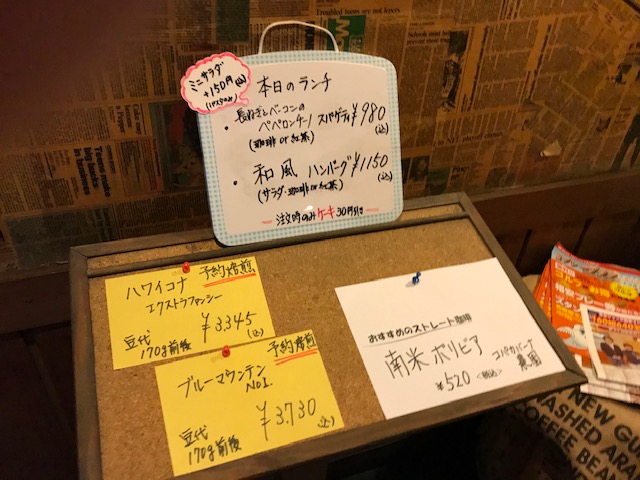 ミニサラダ
+150円(込)
本日のランチ
・長ねぎとベーコンの
ペペロンチーノスパゲティ ¥980
(珈琲 or 紅茶) (込)
・和風 ハンバーグ ¥1150
(サラダ・珈琲 or 紅茶) (込)
注文時のみケーキ30円引き
予約焙煎
ハワイコナ
エクストラファンシー
¥3,345
(込)
豆代
170g前後
予約焙煎
ブルーマウンテン
No1.
¥3,730
(込)
豆代
170g前後
おすすめのストレート珈琲
南米 ボリビア
コパカバーナ
農園
¥520 <税込>
NEW GU
WASHED ARA
COFFEE BEAN